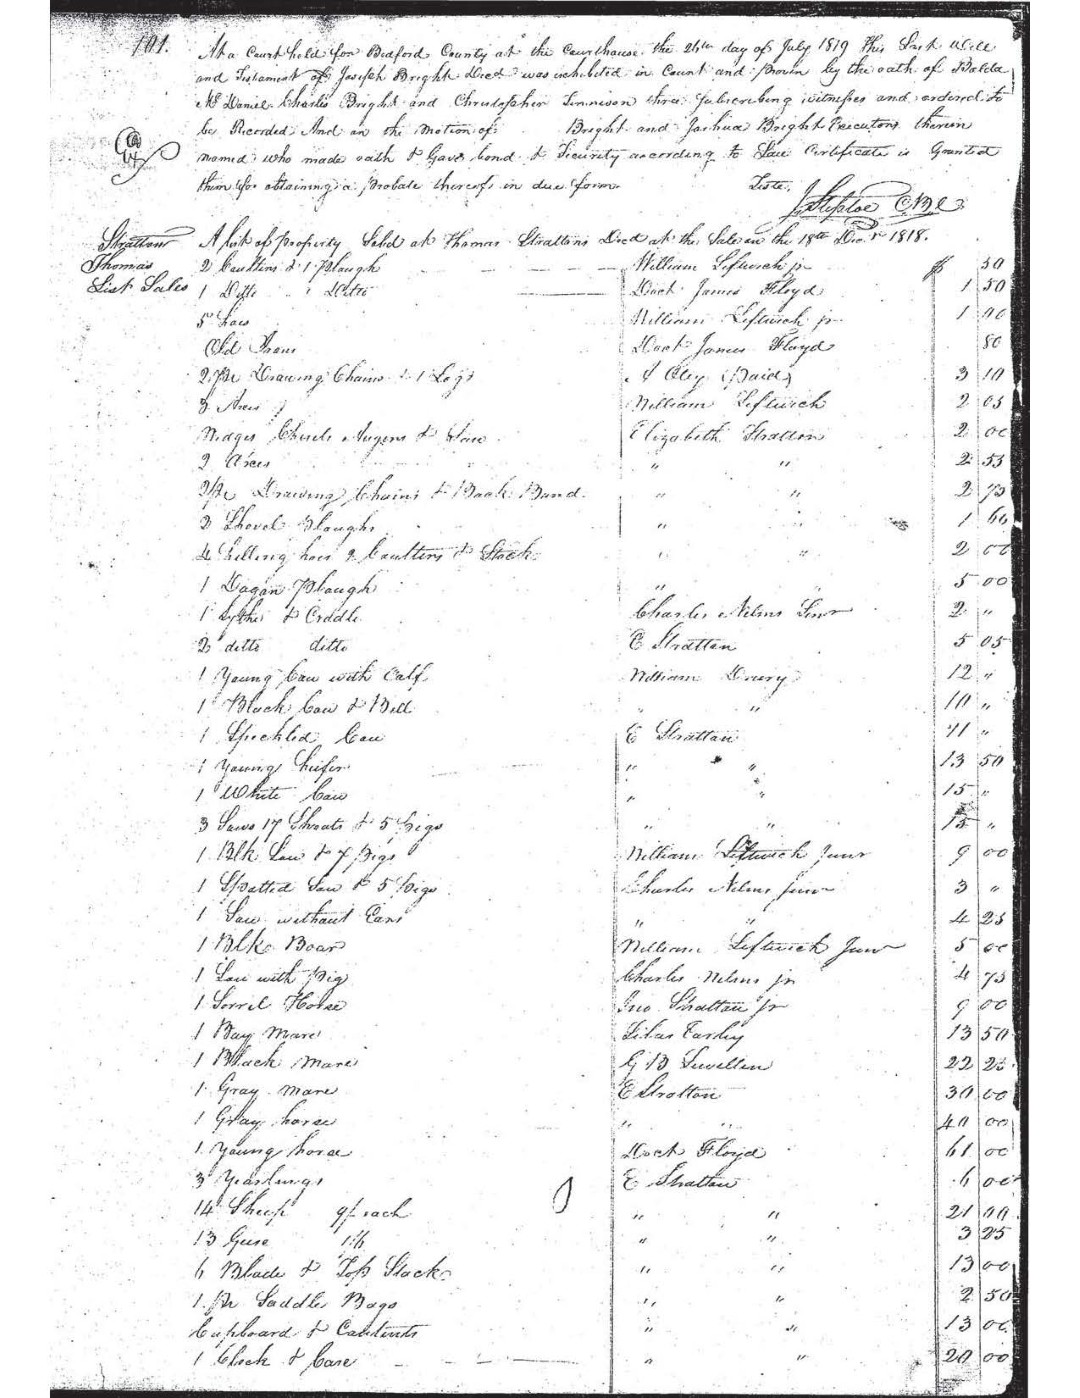 101.
At a Court held for Bedford County at the Courthouse the 26th day of July 1819 This Last Will
and Testament of Joseph Bright Decd was exhibited in Court and proven by the oath of
McDaniel Charles Bright and Christopher three Subscribing witnesses and ordered to
be Recorded And on the motion of Bright and Joshua Bright Executors therein
named who made oath & Gave bond & Security according to Law Certificate is Granted
them for obtaining a probate thereof in due form.
Teste.
J Steptoe CBC
Stratton
Thomas
List Sales
A list of Property Sold at Thomas Strattons Decd at the Sale on the 18th Decr 1818.
2 Coulters & 1 Plough William Leftwich jr $ 50
1 Ditto " Ditto Doct James Floyd 1 50
5 hoes William Leftwich jr 1 00
Old Irons Doct James Floyd 80
2 pr Drawing Chains & 1 Log A Oley (Paid) 3 10
3 Axes William Leftwich 2 05
Wedges Chisels Augers & Saw Elizabeth Stratton 2 00
2 Axes " " 2 55
2 pr Drawing Chains & Back Band " " 2 75
2 Shovel Ploughs " " 1 60
4 hilling hoes 2 Coulters & Stock " " 2 00
1 Dagon Plough " " 5 00
1 Sythe & Cradle Charles Nelms Senr 2 "
2 ditto ditto E Stratton 5 05
1 Young Cow with Calf William Drury 12 "
1 Black Cow & Bell " " 10 "
1 Speckled Cow E Stratton 11 "
1 Young heifer " " 13 50
1 White Cow " " 15 "
3 Sows 17 Shoats & 5 Pigs " " 15 "
1 Blk Sow & 7 Pigs William Leftwich Junr 9 00
1 Spotted Sow & 5 Pigs Charles Nelms Junr 3 "
1 Sow without Ears " " 4 25
1 Blk Boar William Leftwich Junr 5 00
1 Sow with Pig Charles Nelms jr 4 75
1 Sorril Horse Jno Stratton jr 9 00
1 Bay Mare Silas Earley 13 50
1 Black Mare G B Lewellen 22 25
1 Gray Mare E Stratton 30 00
1 Gray horse " " 40 00
1 Young horse Doct Floyd 61 00
3 Yearlings E Stratton 6 00
14 Sheep 9/ each " " 21 00
13 Geese 1/6 " " 3 25
6 Blade & Top Stacks " " 13 00
1 pr Saddle Bags " " 2 50
Cupboard & Contents " " 13 00
1 Clock & Case " " 20 00